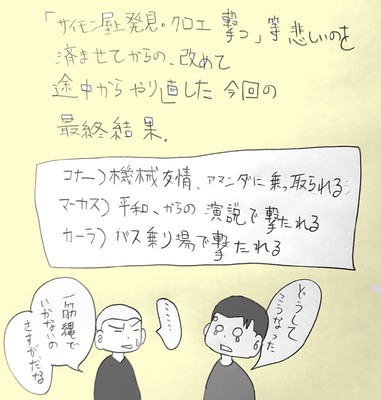 「サイモン屋上発見。クロエ 撃つ」等 悲しいのを
済ませてからの、改めて
途中から やり直した 今回の
最終結果。
コナー）機械 友情、アマンダに乗っ取られる
マーカス）平和、からの 演説で撃たれる
カーラ）バス乗り場で撃たれる
どうして
こうなった
……
一筋縄で
いかないの
さすがだな